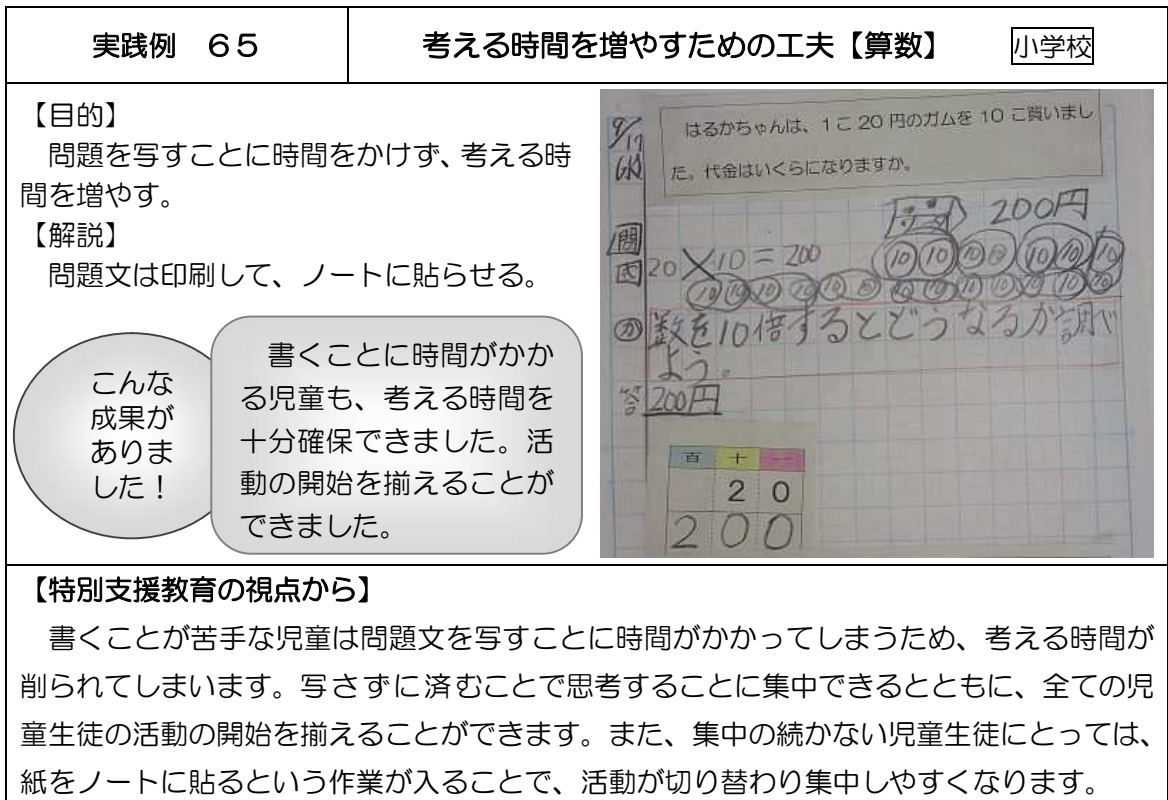 実践例 65
考える時間を増やすための工夫【算数】
小学校
【目的】
問題を写すことに時間をかけず、考える時
間を増やす。
【解説】
問題文は印刷して、ノートに貼らせる。
こんな
成果が
ありま
した！
書くことに時間がかか
る児童も、考える時間を
十分確保できました。活
動の開始を揃えることが
できました。
はるかちゃんは、1こ20円のガムを10こ買いまし
た。代金はいくらになりますか。
200円
問
20×10=200
10 10 10 10 10 10
か 数を10倍するとどうなるか調べ
よう。
答 200円
百 十 一
2 0
2 0 0
【特別支援教育の視点から】
書くことが苦手な児童は問題文を写すことに時間がかかってしまうため、考える時間が
削られてしまいます。写さずに済むことで思考することに集中できるとともに、全ての児
童生徒の活動の開始を揃えることができます。また、集中の続かない児童生徒にとっては、
紙をノートに貼るという作業が入ることで、活動が切り替わり集中しやすくなります。